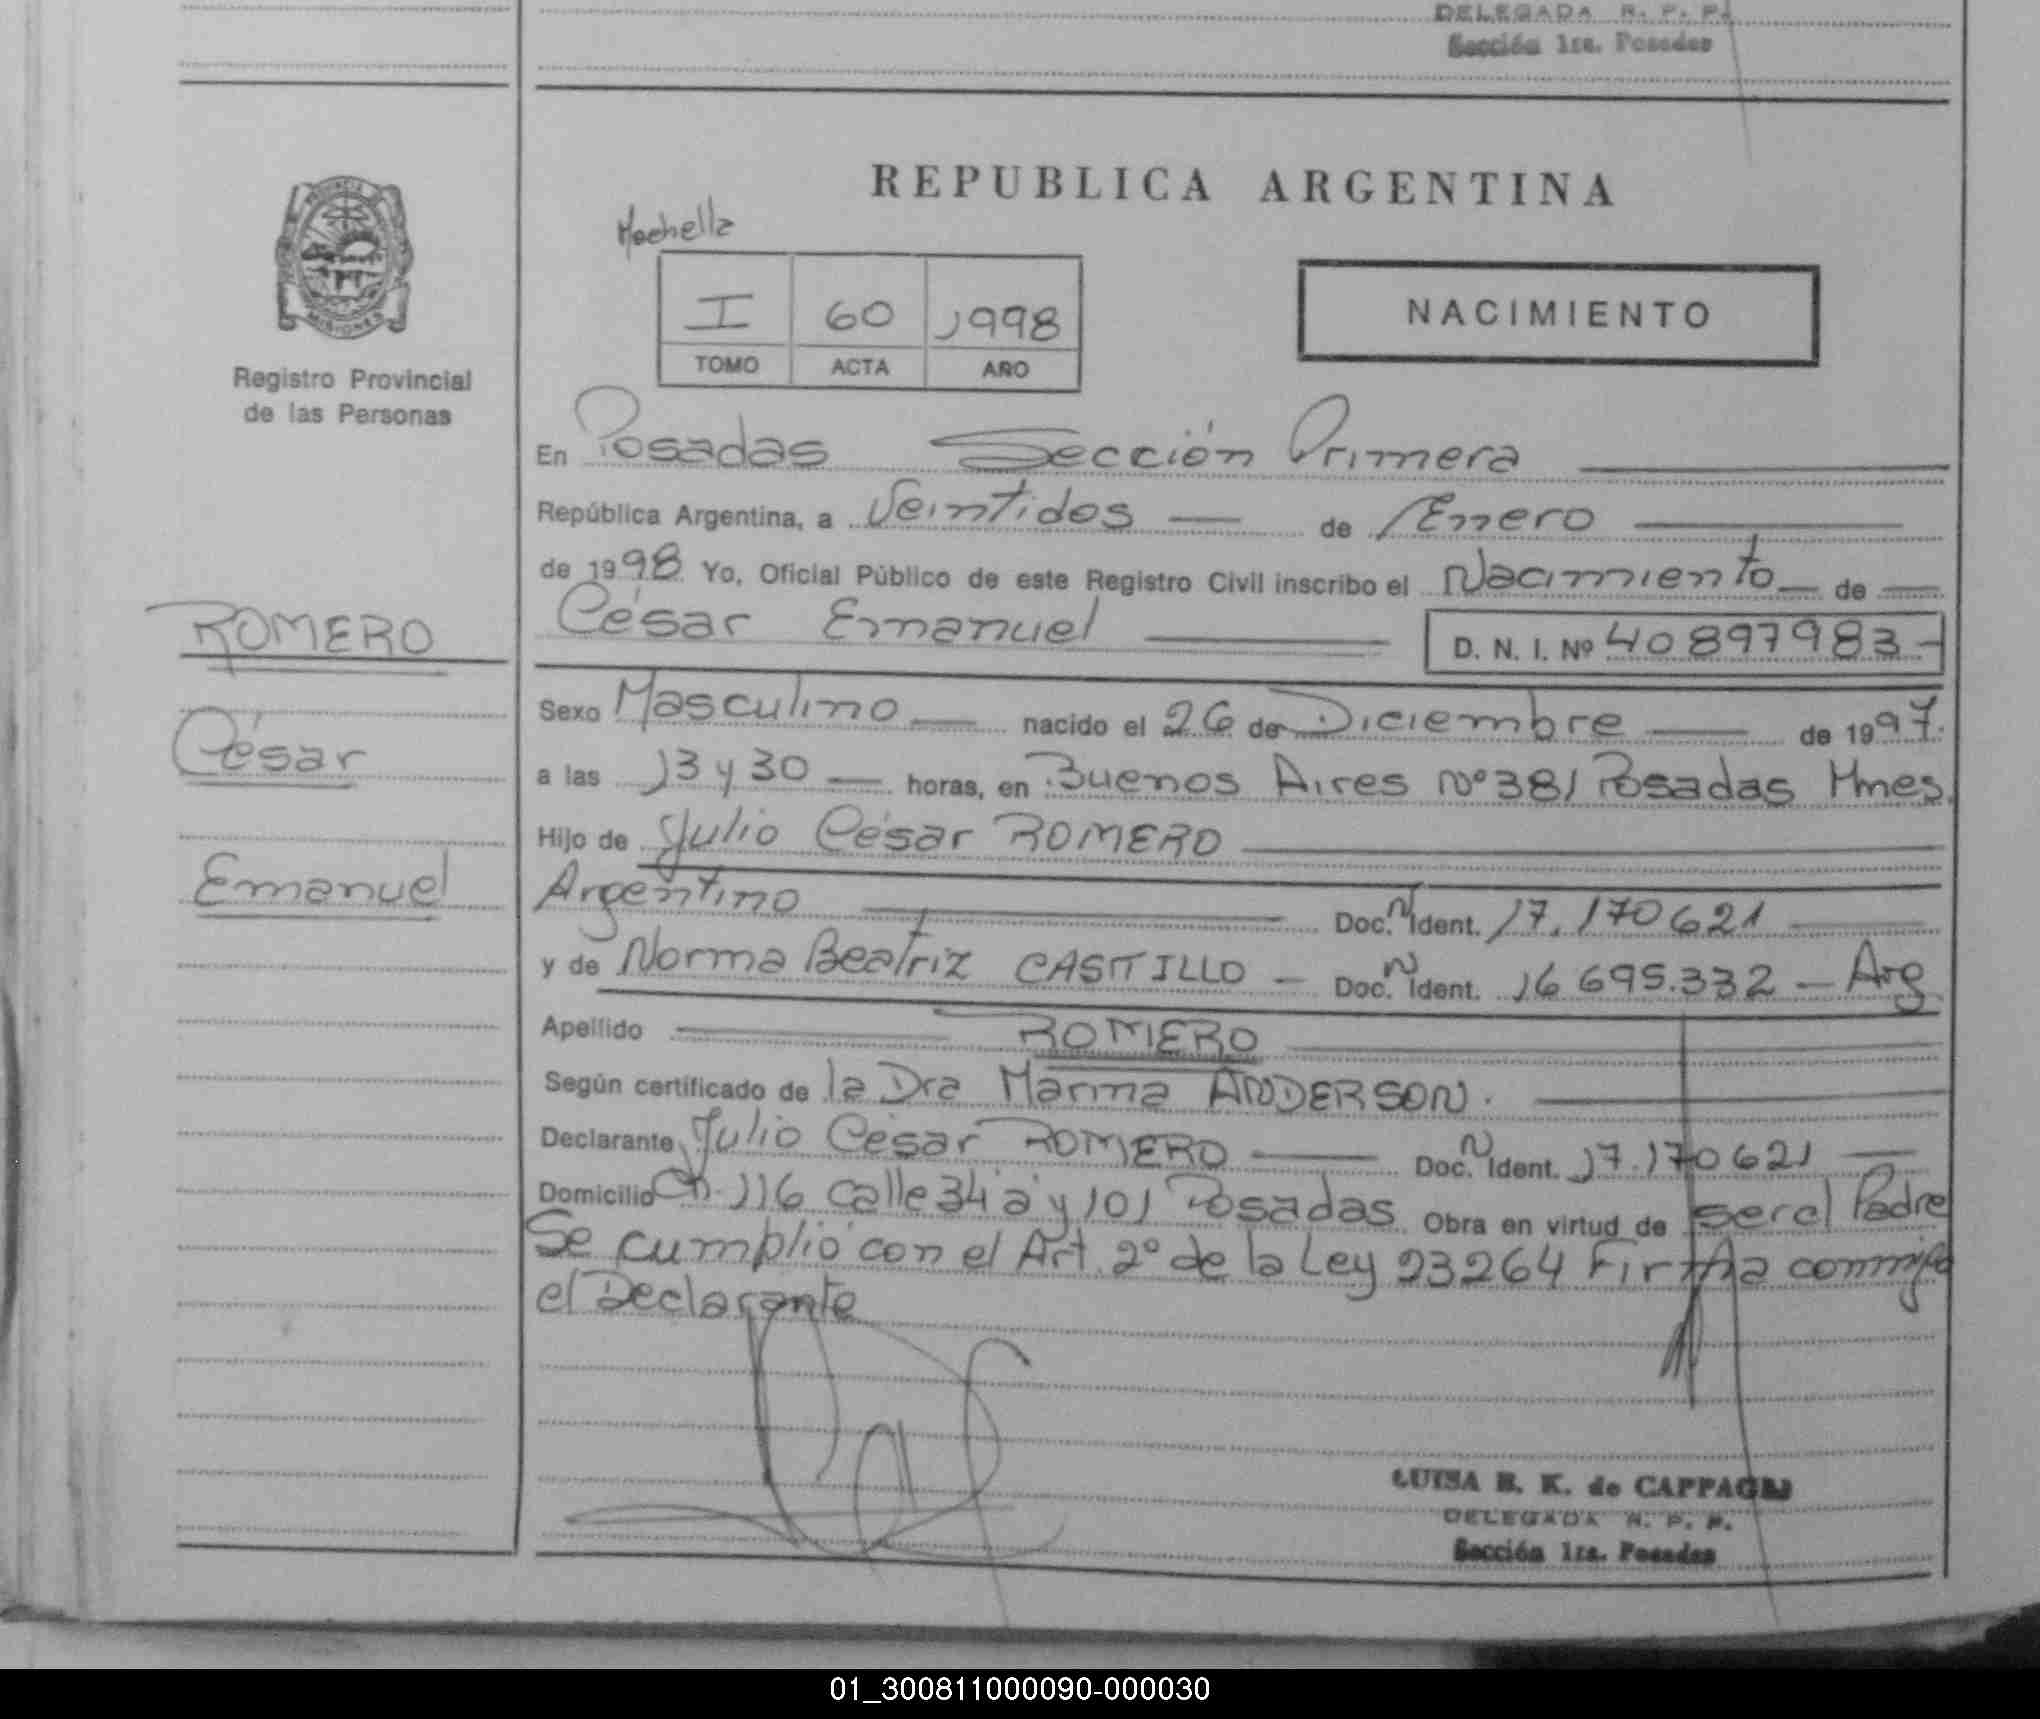 DELEGADA R. P. P.
Sección 1ra. Posadas
PROVINCIA DE
MISIONES
Registro Provincial
de las Personas
REPUBLICA ARGENTINA
NACIMIENTO
I 60 1998
TOMO ACTA AÑO
En Posadas Sección Primera
República Argentina, a Veintidos de Enero
de 1998 Yo, Oficial Público de este Registro Civil inscribo el Nacimiento de
César Emanuel D. N. I. Nº 40897983
ROMERO
César
Emanuel
Sexo Masculino nacido el 26 de Diciembre de 1997.
a las 13 y 30 horas, en Buenos Aires Nº 381 Posadas Mnes.
Hijo de Julio César ROMERO
Argentino Doc. N Ident. 17.170621
y de Norma Beatriz CASTILLO - Doc. N Ident. 16 695.332 - Arg
Apellido ROMERO
Según certificado de la Dra Marina ANDERSON.
Declarante Julio César ROMERO Doc. N Ident. 17.170621
Domicilio Ch. 116 Calle 34 "a" y 101 Posadas Obra en virtud de ser el Padre
Se cumplió con el Art. 2º de la Ley 23264 Firma conmigo
el Declarante
LUISA B. K. de CAPPAGLI
DELEGADA R. P. P.
Sección 1ra. Posadas
01_300811000090-000030